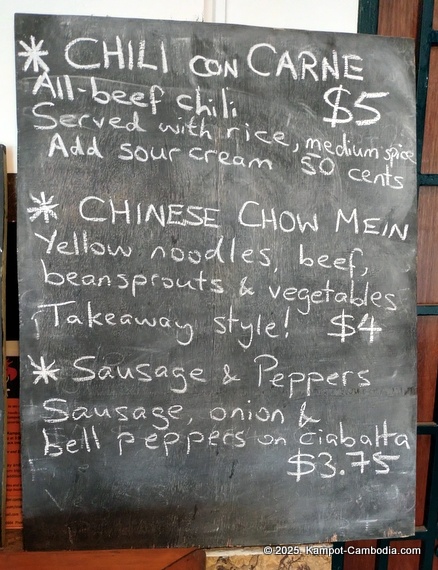 * CHILI CON CARNE
All-beef chili $5
Served with rice, medium spice
Add sour cream 50 cents
* CHINESE CHOW MEIN
Yellow noodles, beef,
beansprouts & vegetables
Takeaway style! $4
* Sausage & Peppers
Sausage, onion &
bell peppers on ciabatta
$3.75
© 2025, Kampot-Cambodia.com